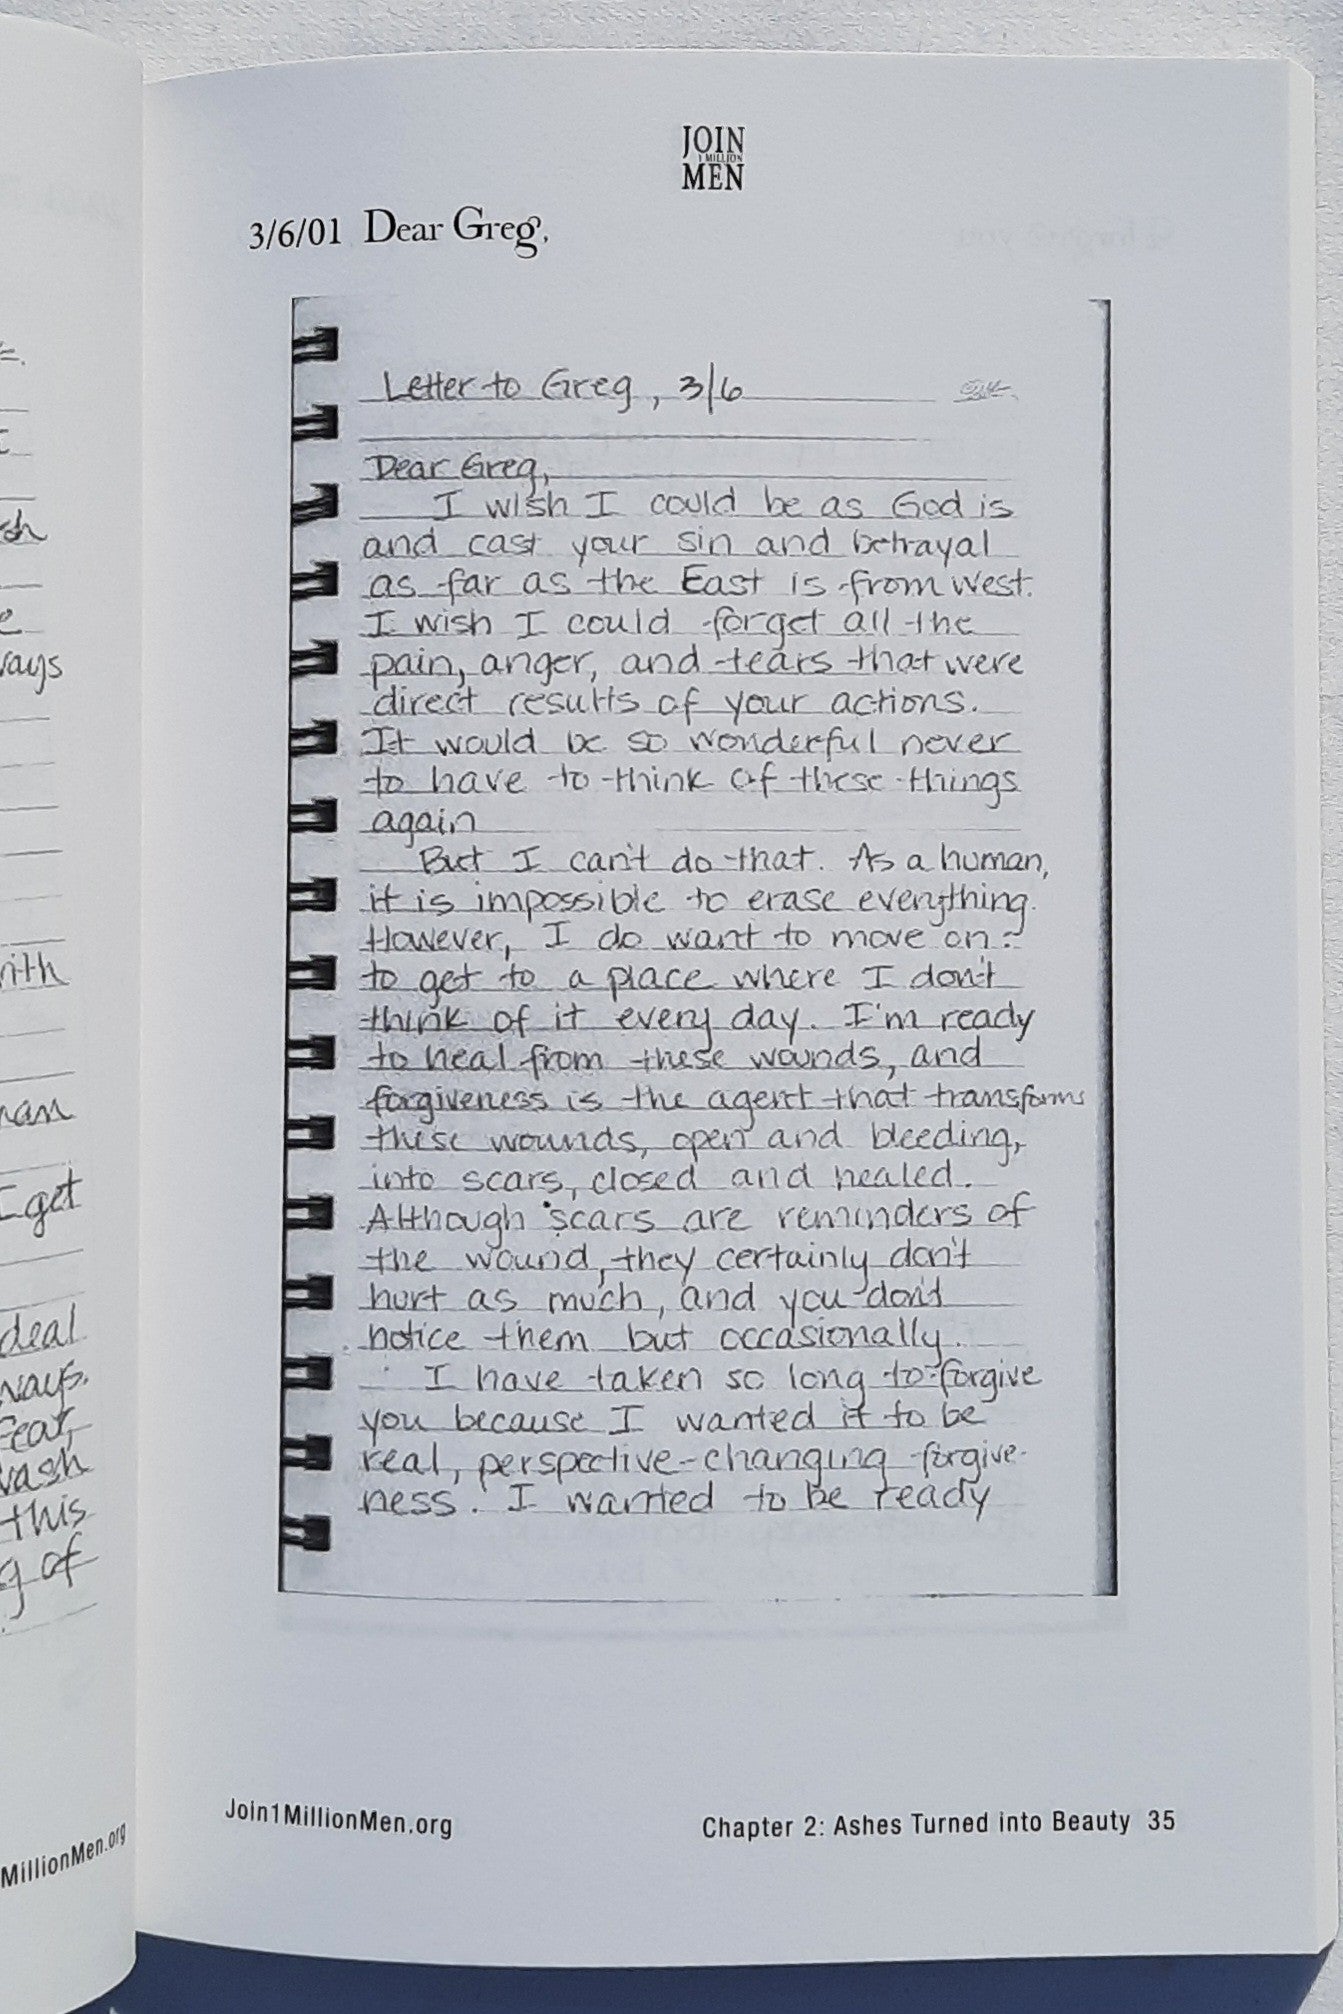 JOIN
1 MILLION
MEN
3/6/01 Dear Greg,
Letter to Greg, 3/6
Dear Greg,
I wish I could be as God is
and cast your sin and betrayal
as far as the East is from West.
I wish I could forget all the
pain, anger, and tears that were
direct results of your actions.
It would be so wonderful never
to have to think of these things
again
But I can't do that. As a human,
it is impossible to erase everything.
However, I do want to move on -
to get to a place where I don't
think of it every day. I'm ready
to heal from these wounds, and
forgiveness is the agent that transforms
these wounds, open and bleeding,
into scars, closed and healed.
Although scars are reminders of
the wound, they certainly don't
hurt as much, and you don't
notice them but occasionally.
I have taken so long to forgive
you because I wanted it to be
real, perspective-changing forgive-
ness. I wanted to be ready
Join1MillionMen.org
Chapter 2: Ashes Turned into Beauty 35
ways
with
I get
deal
ways.
this
of
MillionMen.org